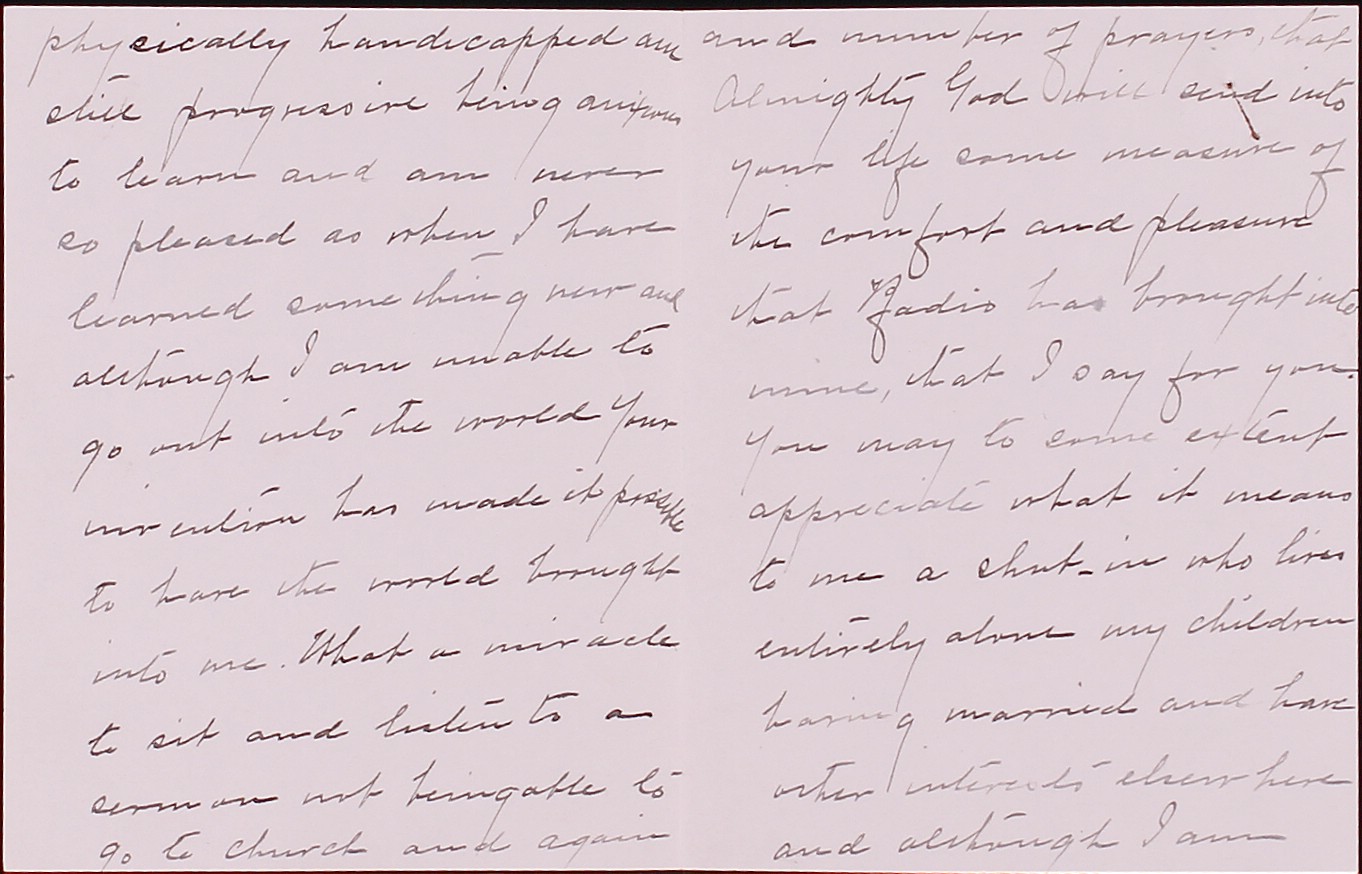 physically handicapped am
still progressive being anxious
to learn and am never
so pleased as when I have
learned something new and
although I am unable to
go out into the world your
invention has made it possible
to have the world brought
into me. What a miracle
to sit and listen to a
sermon not being able to
go to church and again
and number of prayers, that
Almighty God will send into
your life some measure of
the comfort and pleasure
that Radio has brought into
mine, that I say for you.
You may to some extent
appreciate what it means
to me a shut-in who lives
entirely alone my children
having married and have
other interests elsewhere
and although I am